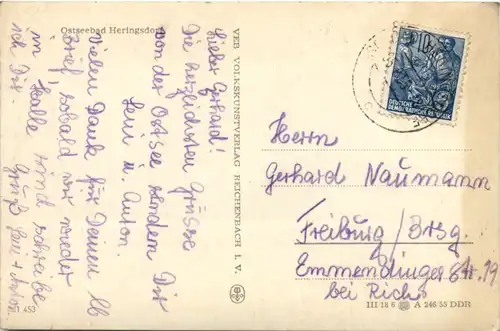 Ostseebad Heringsdorf
Lieber Gerhard!
Die herzlichsten Grüsse
von der Ostsee senden Dir
Leni u. Anton.
Vielen Dank für Deinen lb
Brief, sobald wir wieder
in Halle sind schreibe
ich Dir. Gruß Leni + Anton
VEB VOLKSKUNSTVERLAG REICHENBACH I. V.
10
DEUTSCHE
DEMOKRATISCHE REPUBLIK
Herrn
Gerhard Naumann
Freiburg/Brsg.
Emmendinger Str. 19
bei Riche
III/18 6 A 246/55 DDR